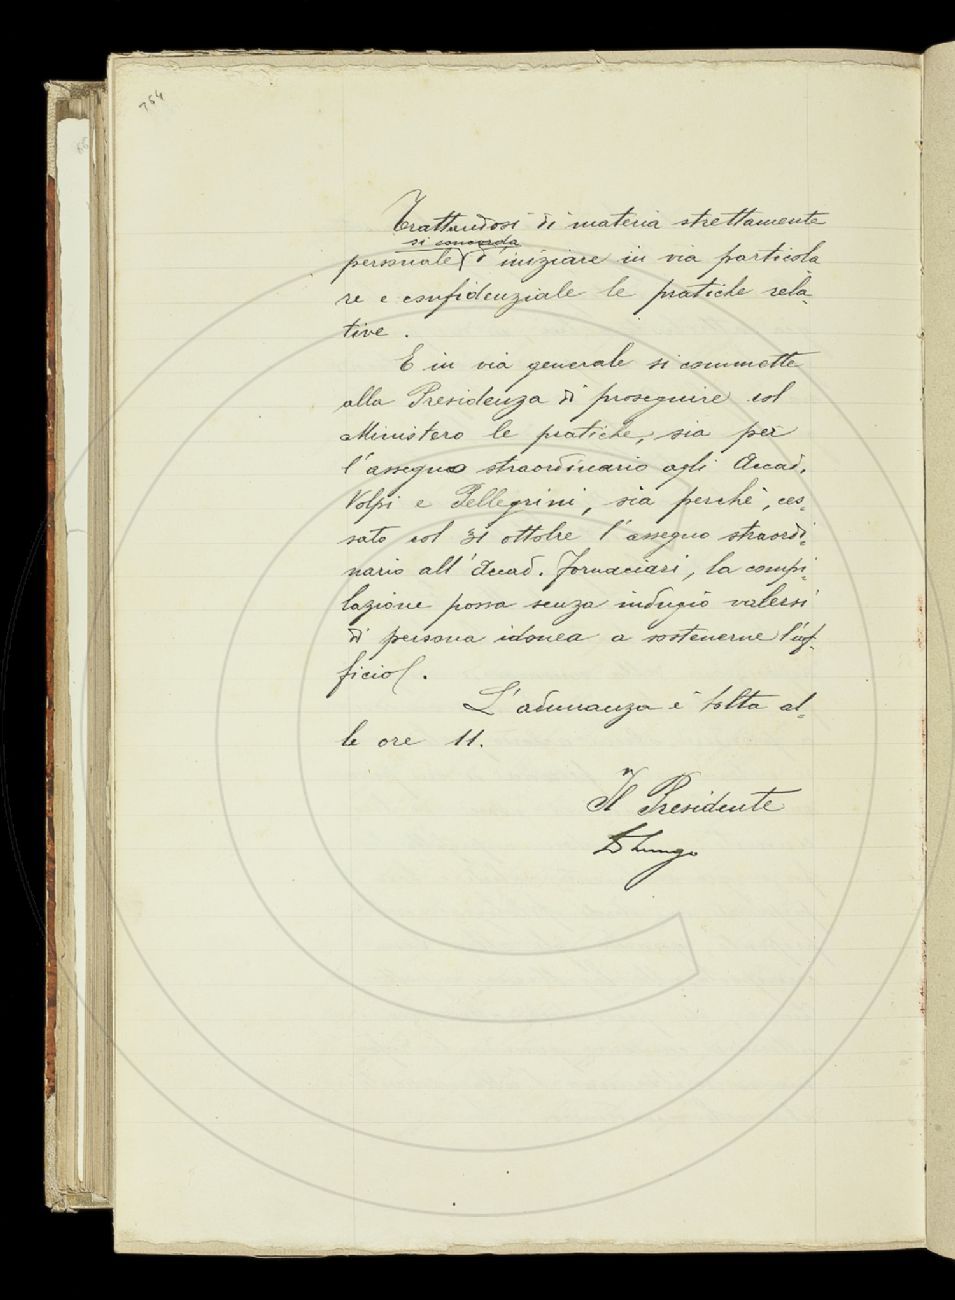 754
Trattandosi di materia strettamente
si concorda
personale d'iniziare in via particola
re e confidenziale le pratiche rela-
tive.
E in via generale si commette
alla Presidenza di proseguire col
Ministero le pratiche, sia per
l'assegno straordinario agli Accad.
Volpi e Pellegrini, sia perchè, ces-
sato col 31 ottobre l'assegno straordi-
nario all'Accad. Fornaciari, la compi-
lazione possa senza indugio valersi
di persona idonea a sostenerne l'uf-
ficio.
L'adunanza è sciolta al-
le ore 11.
Il Presidente